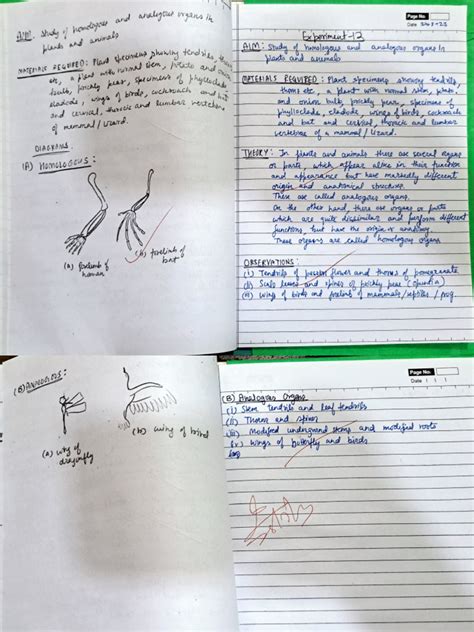 AIM: Study of homologous and analogous organs in
plants and animals
MATERIALS REQUIRED: Plant specimens showing tendrils, thorns
etc, a plant with normal stem, potato and onion
bulb, prickly pear, specimens of phylloclade,
cladode, wings of birds, cockroach and bat
and cervical, thoracic and lumbar vertebrae
of mammal / lizard.
DIAGRAMS
(A) HOMOLOGOUS:
(a) forelimb of
human
(b) forelimb of
bat
Page No.
Date
Experiment-12
AIM: Study of homologous and analogous organs in
plants and animals
MATERIALS REQUIRED: Plant specimens showing tendrils,
thorns etc., a plant with normal stem,
and onion bulb, prickly pear, specimens of
phylloclade, cladode, wings of birds, cockroach
and bat and cervical, thoracic and lumbar
vertebrae of a mammal / lizard.
THEORY: In plants and animals there are several organs
or parts which appear alike in their function
and appearance but have markedly different
origin and anatomical structures.
These are called analogous organs.
On the other hand, there are organs or parts
which are quite dissimilar and perform different
functions, but have the origin or anatomy.
These organs are called homologous organs
OBSERVATIONS:
(i) Tendrils of passion flower and thorns of pomegranate
(ii) Scale leaves and spines of prickly pear (opuntia)
(iii) Wings of birds and forelimb of mammals/reptiles/frog.
(B) ANALOGOUS:
(a) wing of
dragonfly
(b) wing of bird
Page No.
Date
(B) Analogous Organs
(i) Stem tendrils and leaf tendrils
(ii) Thorns and spines
(iii) Modified underground stems and modified roots
(iv) Wings of butterfly and birds